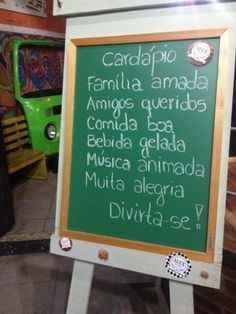 Cardápio
Família amada
Amigos queridos
Comida boa
Bebida gelada
Música animada
Muita alegria
Divirta-se!